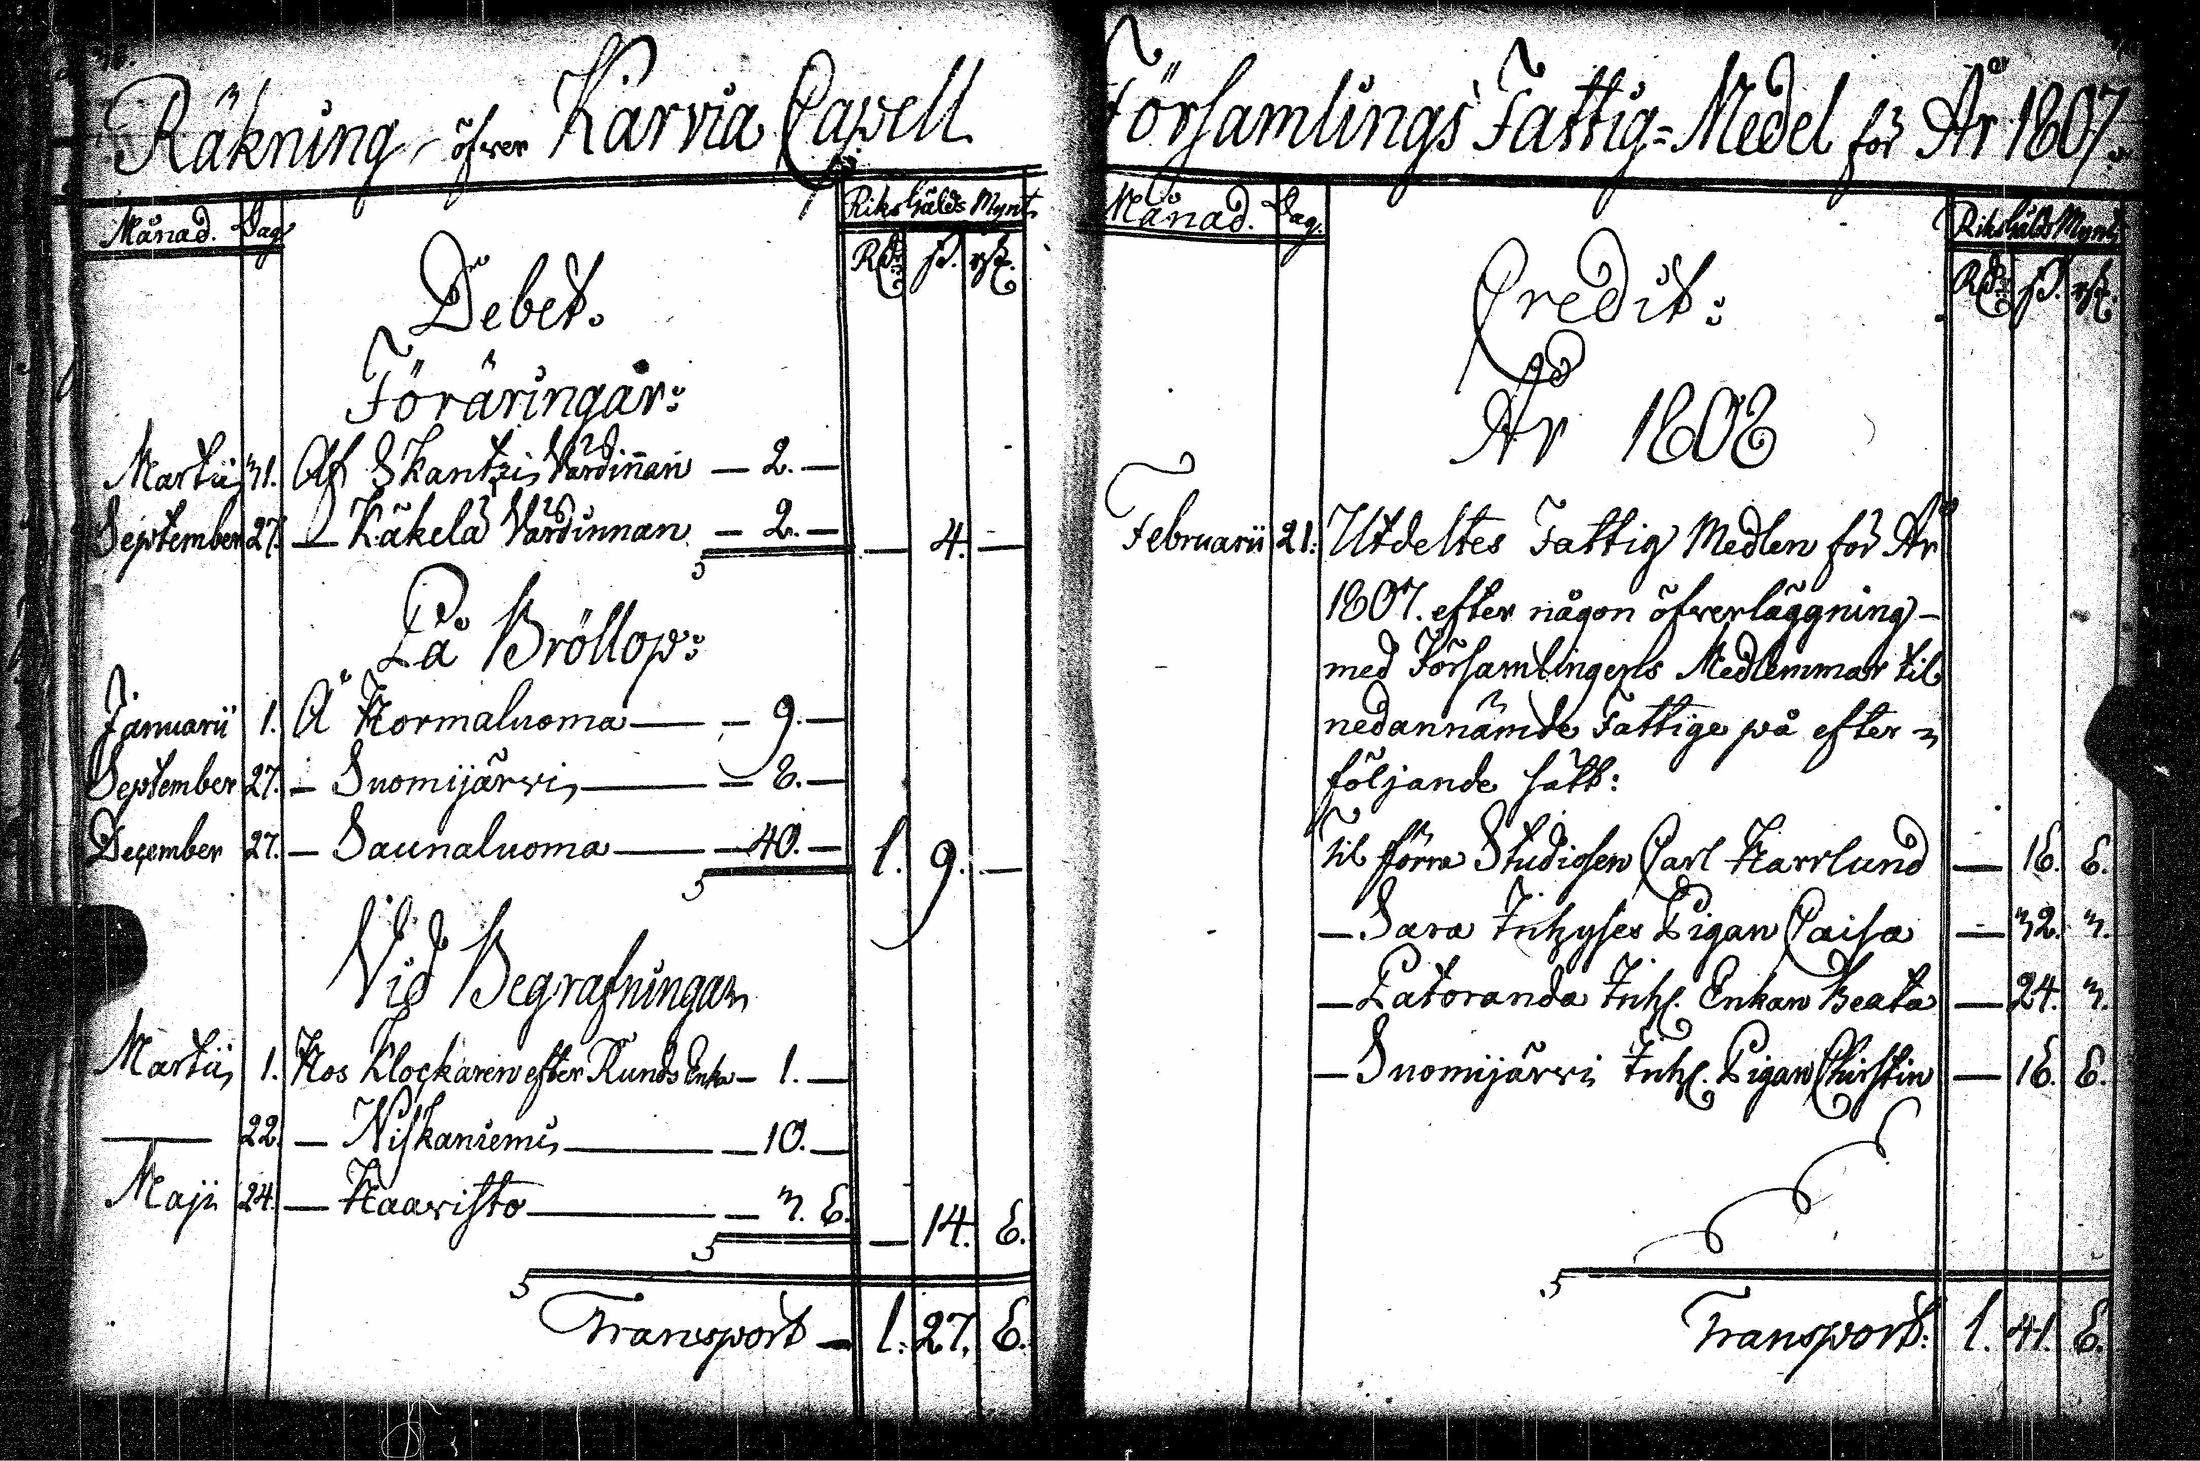 Räkning öfver Karvia Capell
Månad. Dag. Riks Gälds Mynt.
Rdr ß. rst.
Debet.
Föräringar:
Martii 31. Af Skantzi Värdinnan — 2. —
September 27. — Käkelä Värdinnan — 2. — — 4. —
På Bröllop:
Januarii 1. Å Kormaluoma — — 9. —
September 27. — Suomijärvi — — 8. —
December 27. — Saunaluoma — 40. — 1. 9. —
Vid Begrafningar
Martii 1. Hos Klockaren efter Runds Enka — 1. —
— 22. — Niskaniemi — — 10. —
Maji 24. — Haavisto — — 3. 8. — 14. 8.
Transport — 1. 27. 8.
Församlings Fattig-Medel för År 1807.
Månad. Dag. Riks Gälds Mynt.
Rdr ß. rst.
Credit:
År 1808
Februarii 21. Utdeltes Fattig Medlen för År
1807. efter någon öfverläggning
med Församlingens Medlemmar til
nedannämde Fattige på efter-
följande sätt:
Til förra Studiosen Carl Harrlund — 16. 8.
— Sara Inhyses Pigan Caisa — 32. 3.
— Patoranda Inhs. Enkan Beata — 24. 3.
— Suomijärvi Inhs. Pigan Christin — 16. 8.
Transport: 1. 41. 8.